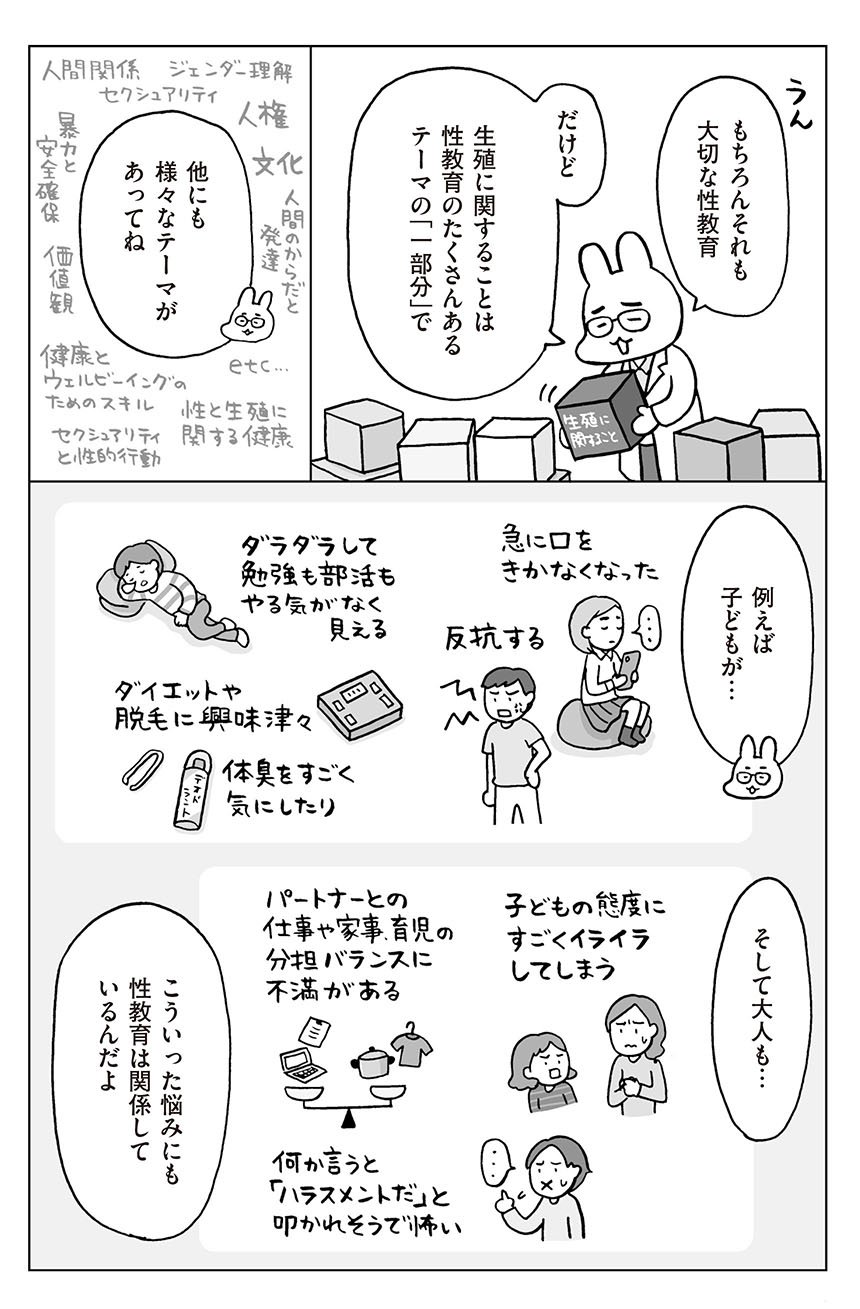 うん
もちろんそれも
大切な性教育
だけど
生殖に関することは
性教育のたくさんある
テーマの「一部分」で
生殖に
関すること
他にも
様々なテーマが
あってね
人間関係
ジェンダー理解
セクシュアリティ
人権
暴力と
安全確保
文化
人間のからだと
発達
価値観
健康と
ウェルビーイングの
ためのスキル
etc…
性と生殖に
関する健康
セクシュアリティ
と性的行動
例えば
子どもが…
急に口を
きかなくなった
…
反抗する
ダラダラして
勉強も部活も
やる気がなく
見える
ダイエットや
脱毛に興味津々
体臭をすごく
気にしたり
デオド
ラント
そして大人も…
子どもの態度に
すごくイライラ
してしまう
パートナーとの
仕事や家事、育児の
分担バランスに
不満がある
何か言うと
「ハラスメントだ」と
叩かれそうで怖い
…
こういった悩みにも
性教育は関係して
いるんだよ